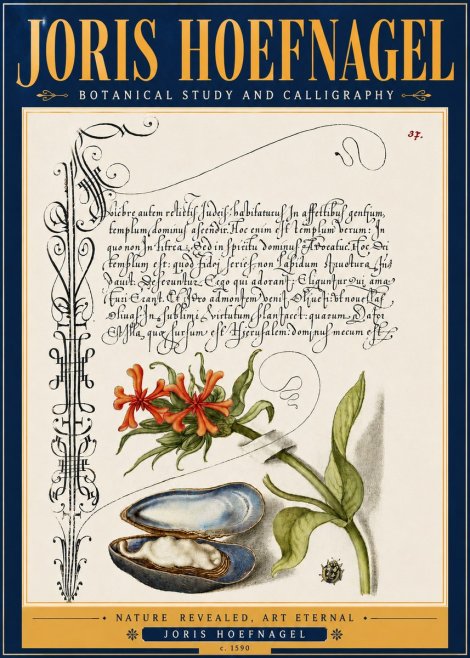 JORIS HOEFNAGEL
BOTANICAL STUDY AND CALLIGRAPHY
37.
autem relictis Judeis: habitaturus In affectibus gentium,
templum dominus ascendit. Hoc enim est templum verum: In
quo non In litera: Sed in spiritu dominus. Hoc Dei
templum est: quod fidei series non lapidum
Deseruntur. Ergo qui adorant: Eliguntur qui ama
Erant. Et admontem venit
In Sublimi Virtutum plantaret: quarum
quæ sursum est Hierusalem: dominus mecum est
NATURE REVEALED, ART ETERNAL
JORIS HOEFNAGEL
c. 1590